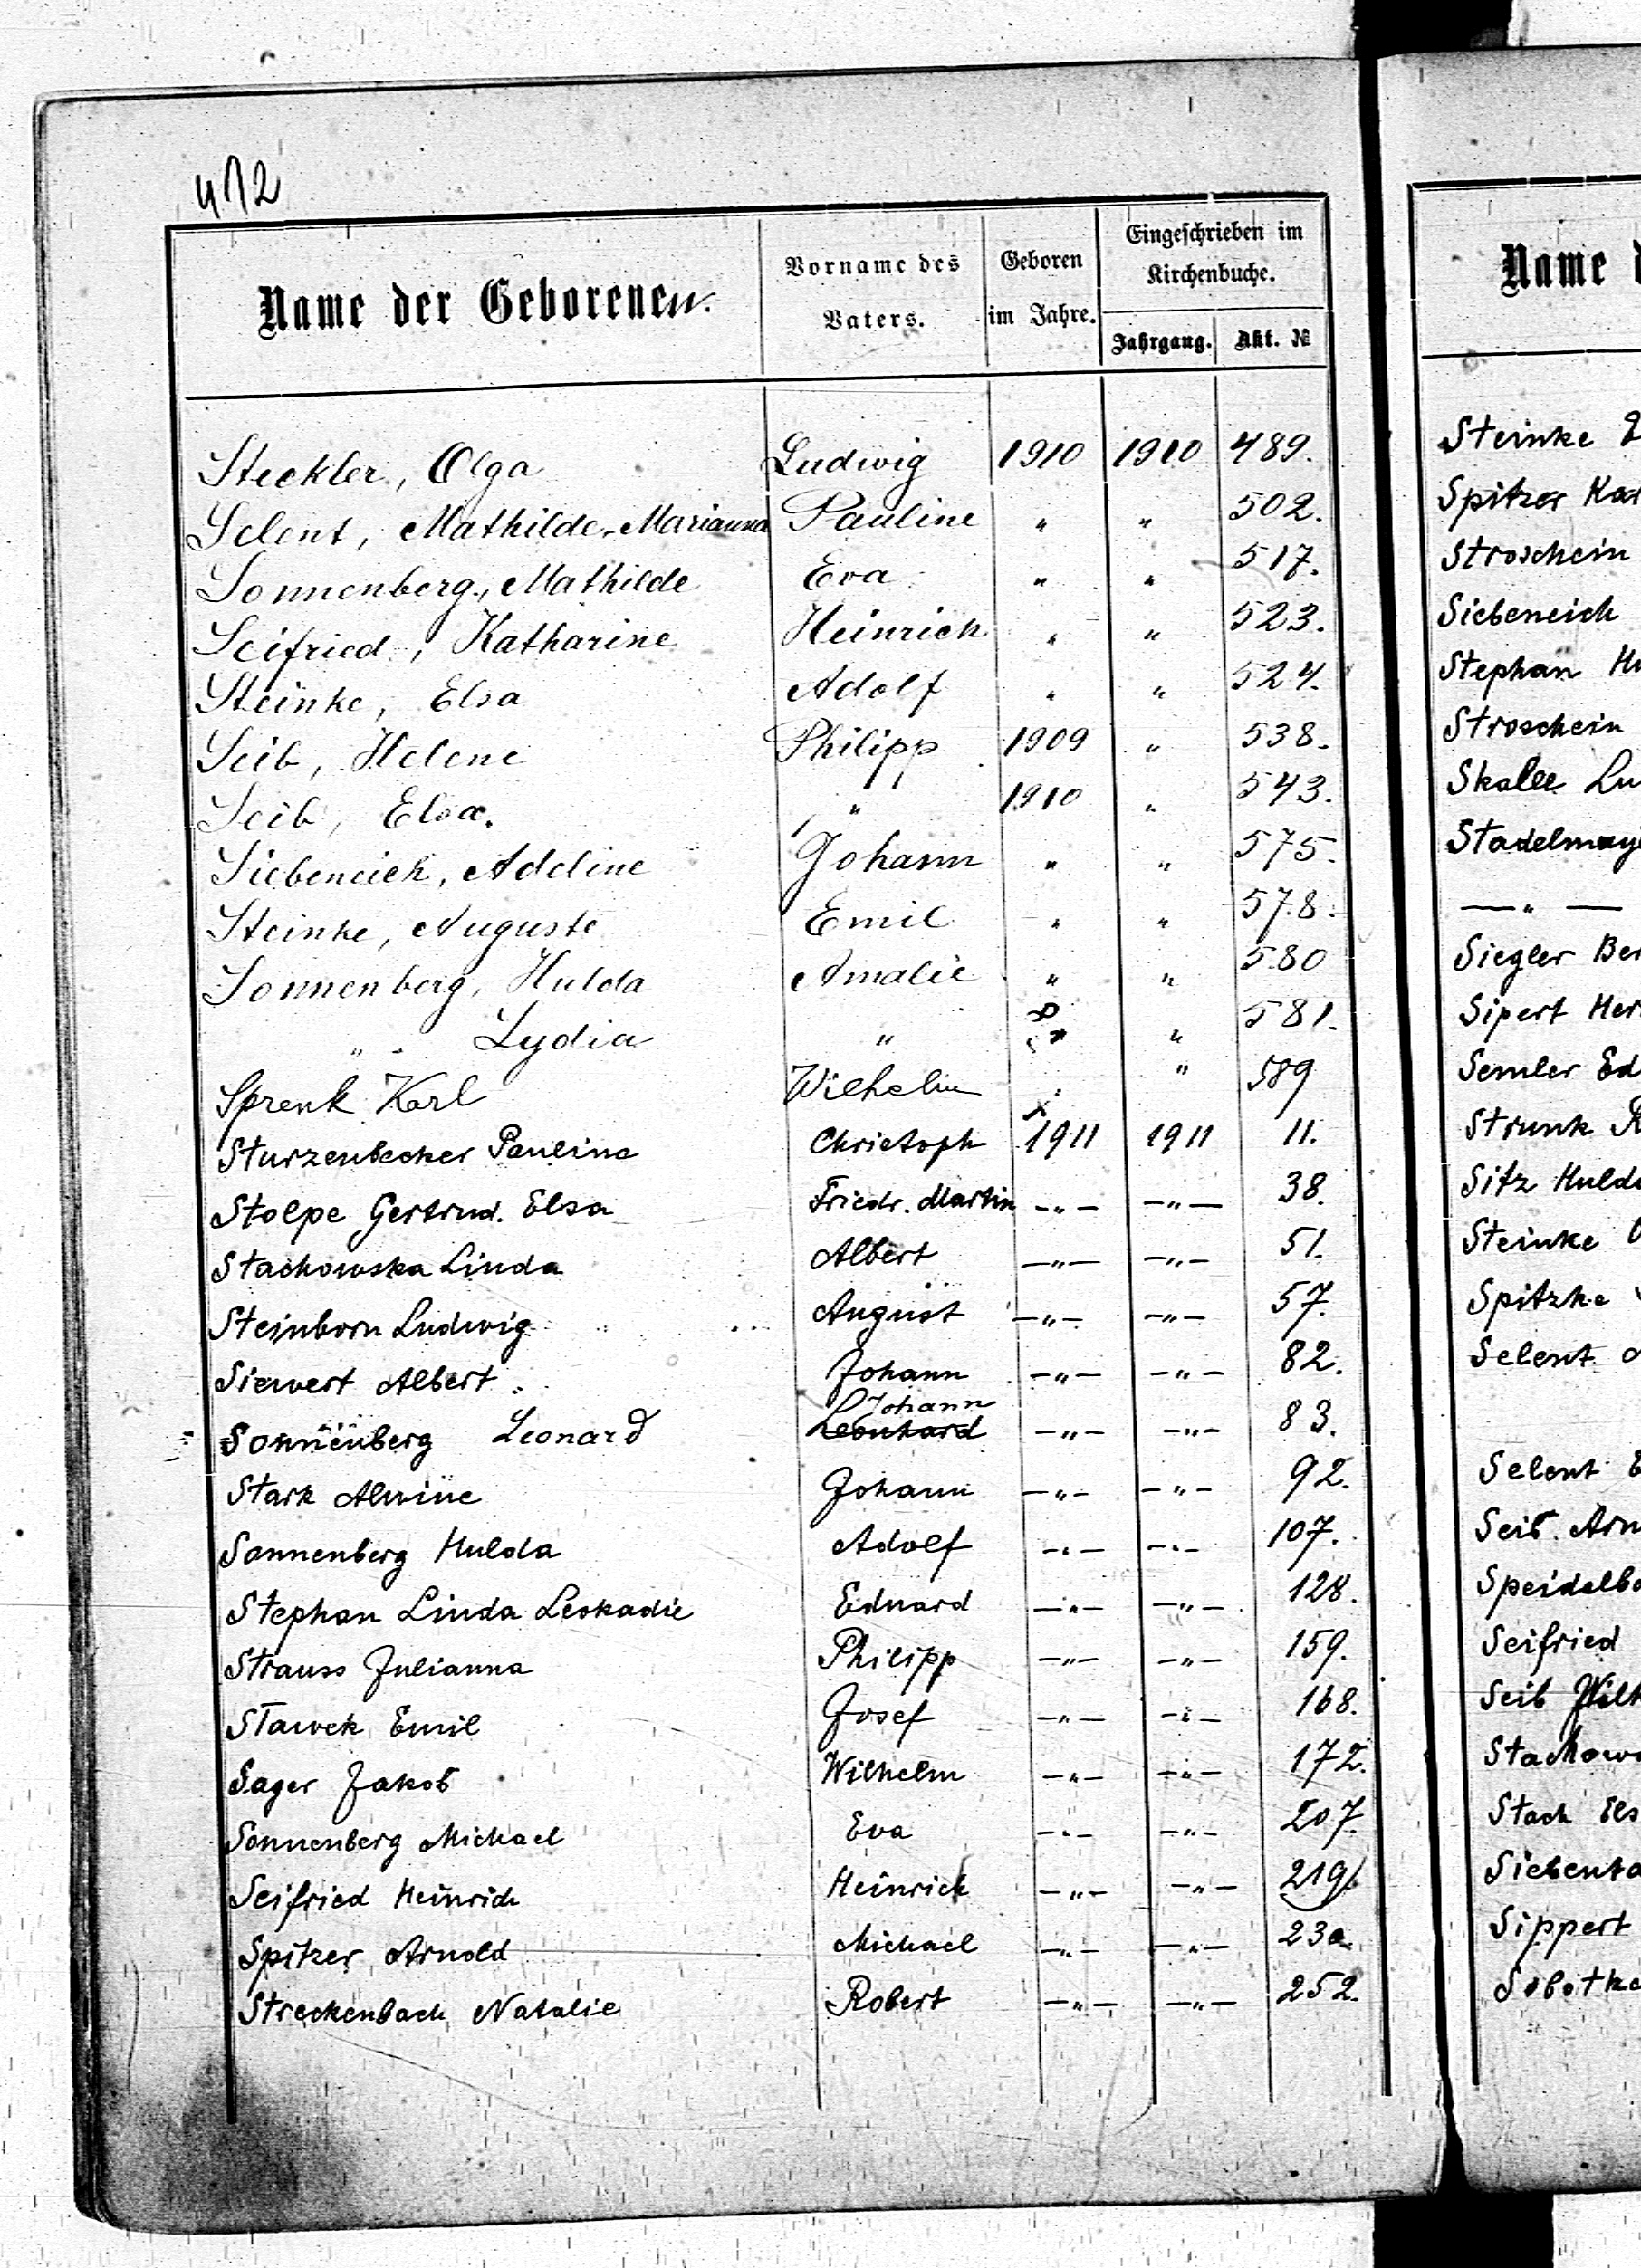 412
Name der Geborenen.
Vorname des Vaters.
Geboren im Jahre.
Eingeschrieben im Kirchenbuche.
Jahrgang. Akt. №
Steckler, Olga Ludwig 1910 1910 489.
Selent, Mathilde-Marianna Pauline " " 502.
Sonnenberg, Mathilde Eva " " 517.
Seifried, Katharine Heinrich " " 523.
Steinke, Elsa Adolf " " 524.
Seib, Helene Philipp 1909 " 538.
Seib, Elsa. " 1910 " 543.
Siebeneich, Adeline Johann " " 575.
Steinke, Auguste Emil " " 578.
Sonnenberg, Hulda Amalie " " 580
" " Lydia " " " 581.
Sprenk Karl Wilhelm " 589
Sturzenbecker Pauline Christoph 1911 1911 11.
Stolpe Gertrud. Elsa Friedr. Martin —"— —"— 38.
Stachowska Linda Albert —"— —"— 51.
Steinborn Ludwig August —"— —"— 57.
Siewert Albert Johann —"— —"— 82.
Sonnenberg Leonard Johann Leonhard —"— —"— 83.
Stark Alwine Johann —"— —"— 92.
Sonnenberg Hulda Adolf —"— —"— 107.
Stephan Linda Leokadie Eduard —"— —"— 128.
Strauss Julianna Philipp —"— —"— 159.
Stawek Emil Josef —"— —"— 168.
Sager Jakob Wilhelm —"— —"— 172.
Sonnenberg Michael Eva —"— —"— 207.
Seifried Heinrich Heinrich —"— —"— 219
Spitzer Arnold Michael —"— —"— 230.
Streckenbach Natalie Robert —"— —"— 252.
Name
Steinke
Spitzer
Stroschein
Siebeneich
Stephan
Stroschein
Skalle
—"—
Siegler
Sipert
Semler
Strunk
Sitz
Steinke
Spitzke
Selent
Selent
Seib
Seifried
Seib
Stach
Sippert